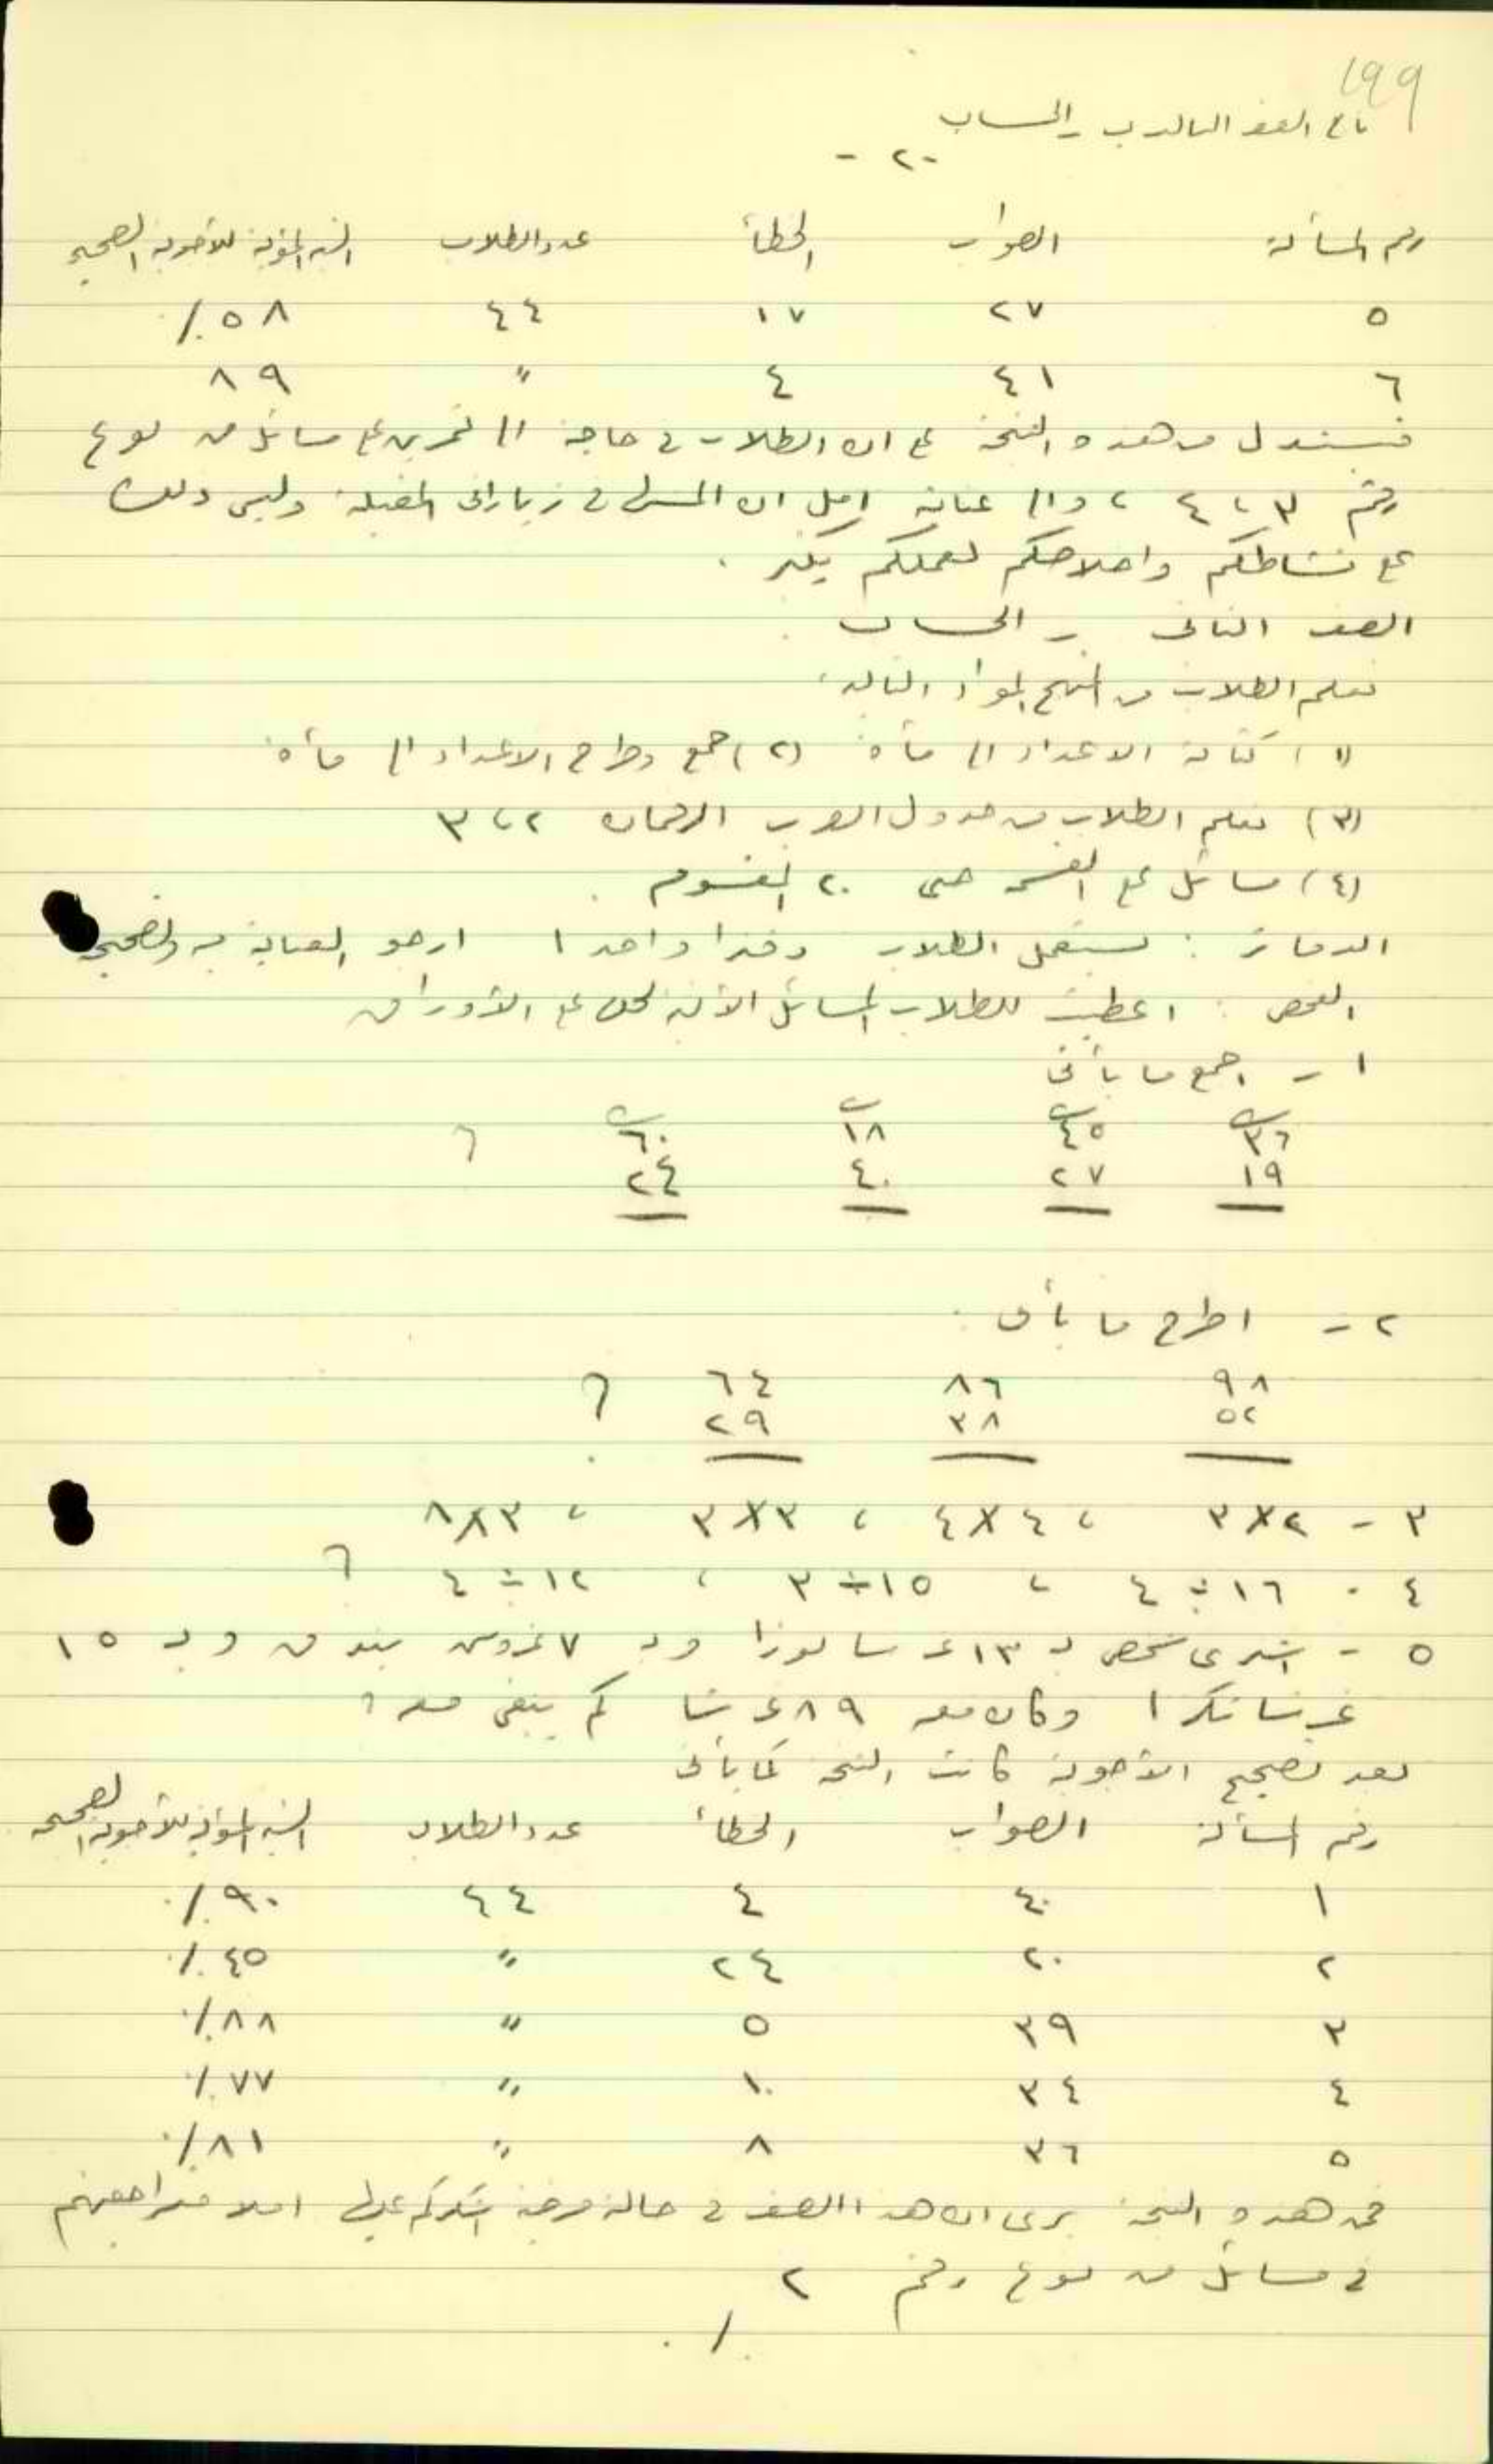 199
تابع الصف الثالث ب - الحساب
- ٢ -
رقم المسألة الصواب الخطأ عدد الطلاب النسبة المئوية للأجوبة الصحيحة
٥ ٢٧ ١٧ ٤٤ ٥٨٪
٦ ٤١ ٤ " ٨٩
فنستدل من هذه النتيجة على ان الطلاب في حاجة الى تمرين على مسائل من نوع
رقم ٣، ٤، والى عناية امل ان المس في زيارتي المقبلة وليس ذلك
على نشاطكم واخلاصكم لعملكم بكثير.
الصف الثاني - الحساب
تعلم الطلاب من المنهج المواد التالية:
(١) كتابة الاعداد الى مأة (٢) جمع وطرح الاعداد الى مأة
(٣) تعلم الطلاب من جدول الضرب الرقمان ٢، ٣
(٤) مسائل على القسمة حتى ٢٠ المقسوم.
الدفاتر: يستعمل الطلاب دفترا واحدا ارجو العناية به وتصحيحه
الفحص: اعطيت للطلاب المسائل الآتية لحلها على الأوراق
١ - اجمع ما يأتي
٣٦ ٤٥ ١٨ ٦٠ ؟
١٩ ٢٧ ٤٠ ٢٤
٢ - اطرح ما يأتي.
٩٨ ٨٦ ٦٤ ؟
٥٢ ٣٨ ٢٩
٣ - ٢×٣ ، ٤×٤ ، ٣×٣ ، ٣×٨
٤ - ١٦ ÷ ٤ ، ١٥ ÷ ٣ ، ١٢ ÷ ٤ ؟
٥ - اشترى شخص بـ ١٣ غرشا لوزا وبـ ٧ غروش بندق وبـ ١٥
غرشا سكرا وكان معه ٨٩ غرشا كم يبقى معه؟
بعد تصحيح الأجوبة كانت النتيجة كما يأتي
رقم المسألة الصواب الخطأ عدد الطلاب النسبة المئوية للأجوبة الصحيحة
١ ٤٠ ٤ ٤٤ ٩٠٪
٢ ٢٠ ٢٤ " ٤٥٪
٣ ٣٩ ٥ " ٨٨٪
٤ ٣٤ ١٠ " ٧٧٪
٥ ٣٦ ٨ " ٨١٪
فمن هذه النتيجة يرى ان هذا الصف في حالة مرضية اشكركم عليها املا مراجعتهم
في مسائل من نوع رقم ٢
./.